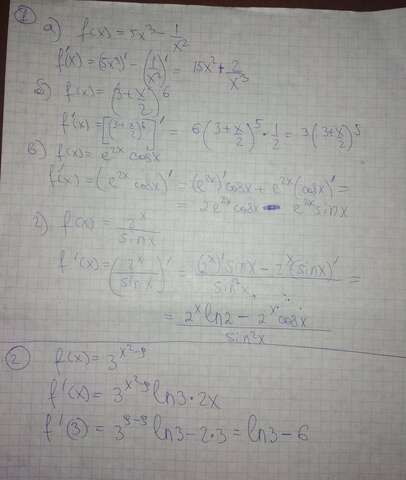 ① а) f(x) = 5x³ - 1/x²
f'(x) = (5x³)' - (1/x²)' = 15x² + 2/x³
б) f(x) = (3+x/2)⁶
f'(x) = [(3+x/2)⁶]' = 6(3+x/2)⁵ · 1/2 = 3(3+x/2)⁵
в) f(x) = e²ˣ cosx
f'(x) = (e²ˣ cosx)' = (e²ˣ)' cosx + e²ˣ(cosx)' =
= 2e²ˣ cosx - e²ˣ sinx
г) f(x) = 2ˣ/sinx
f'(x) = (2ˣ/sinx)' = ((2ˣ)' sinx - 2ˣ(sinx)')/sin²x =
= (2ˣ ln2 - 2ˣ cosx)/sin²x
② f(x) = 3^(x²-9)
f'(x) = 3^(x²-9) ln3 · 2x
f'(3) = 3^(9-9) ln3 - 2·3 = ln3 - 6